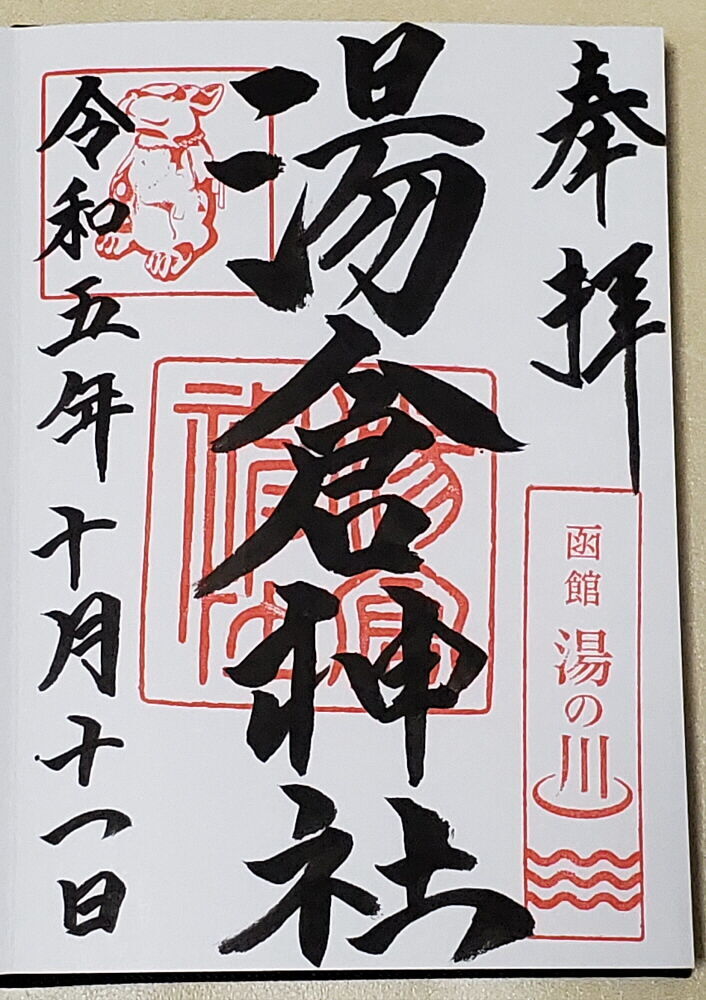 奉拝
函館
湯の川
湯倉神社
湯倉神社
令和五年十月十一日